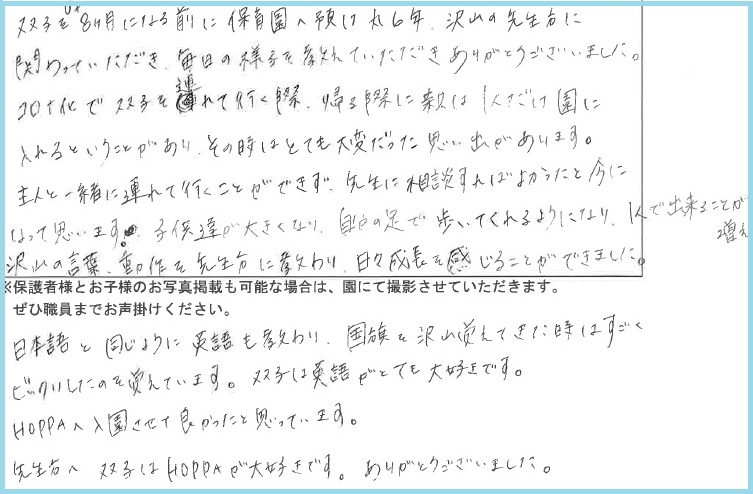 双子を8ヶ月になる前に保育園へ預け丸6年、沢山の先生方に
関わっていただき、毎日の様子を教えていただきありがとうございました。
コロナ化で双子を連れて行く際、帰る際に親は1人だけ園に
入れるということがあり、その時はとても大変だった思い出があります。
主人と一緒に連れて行くことができず、先生に相談すればよかったと今に
なって思います。子供達が大きくなり、自分の足で歩いてくれるようになり、1人で出来ることが
増え
沢山の言葉、動作を先生方に教わり、日々成長を感じることができました。
※保護者様とお子様のお写真掲載も可能な場合は、園にて撮影させていただきます。
ぜひ職員までお声掛けください。
日本語と同じように英語も教わり、国旗を沢山覚えてきた時はすごく
ビックリしたのを覚えています。双子は英語がとても大好きです。
HOPPAへ入園させて良かったと思っています。
先生方へ 双子はHOPPAが大好きです。ありがとうございました。